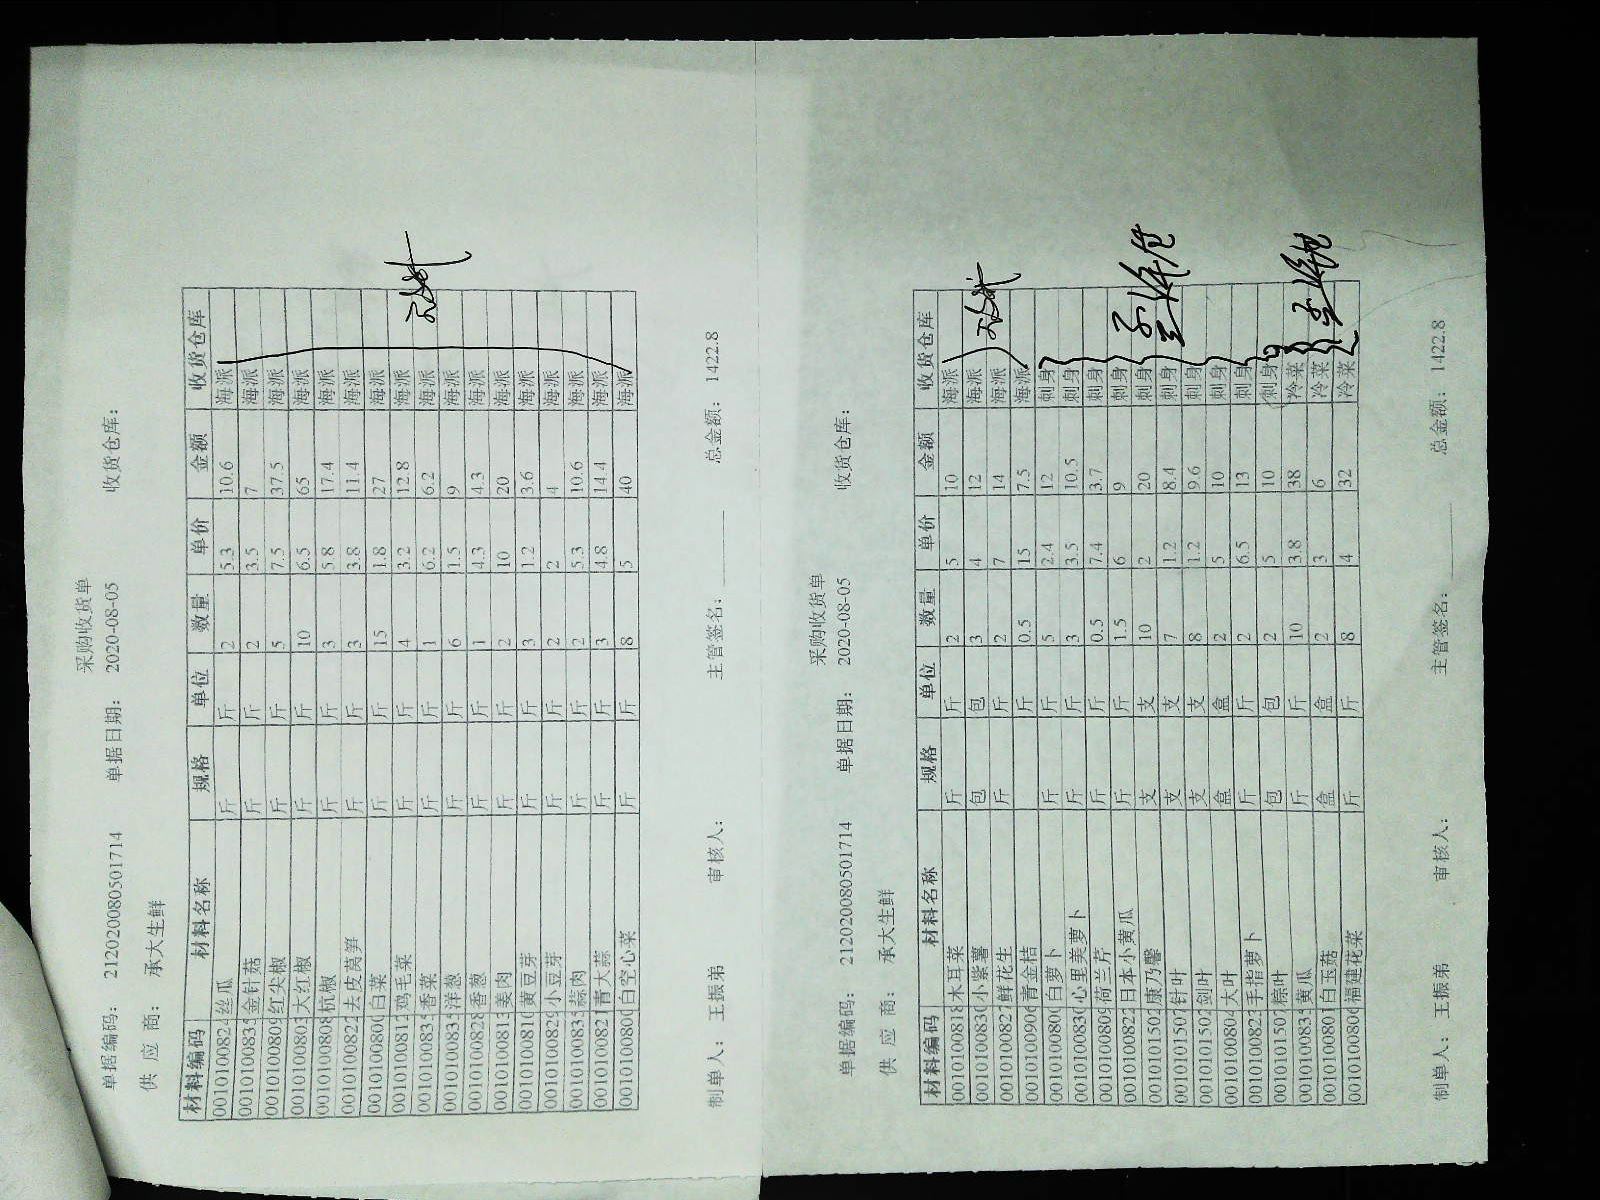 采购收货单
单据编码: 212020080501714 单据日期: 2020-08-05 收货仓库:
供 应 商: 承大生鲜
材料编码 材料名称 规格 单位 数量 单价 金额 收货仓库
0010100824 丝瓜 斤 斤 2 5.3 10.6 海派
0010100835 金针菇 斤 斤 2 3.5 7 海派
0010100809 红尖椒 斤 斤 5 7.5 37.5 海派
0010100803 大红椒 斤 斤 10 6.5 65 海派
0010100808 杭椒 斤 斤 3 5.8 17.4 海派
0010100822 去皮莴笋 斤 斤 3 3.8 11.4 海派
0010100800 白菜 斤 斤 15 1.8 27 海派
0010100812 鸡毛菜 斤 斤 4 3.2 12.8 海派
0010100835 香菜 斤 斤 1 6.2 6.2 海派
0010100835 洋葱 斤 斤 6 1.5 9 海派
0010100828 香葱 斤 斤 1 4.3 4.3 海派
0010100813 姜肉 斤 斤 2 10 20 海派
0010100810 黄豆芽 斤 斤 3 1.2 3.6 海派
0010100829 小豆芽 斤 斤 2 2 4 海派
0010100835 蒜肉 斤 斤 2 5.3 10.6 海派
0010100821 青大蒜 斤 斤 3 4.8 14.4 海派
0010100800 白空心菜 斤 斤 8 5 40 海派
制单人: 王振弟 审核人: 主管签名: 总金额: 1422.8
采购收货单
单据编码: 212020080501714 单据日期: 2020-08-05 收货仓库:
供 应 商: 承大生鲜
材料编码 材料名称 规格 单位 数量 单价 金额 收货仓库
0010100818 木耳菜 斤 斤 2 5 10 海派
0010100830 小紫薯 包 包 3 4 12 海派
0010100827 鲜花生 斤 斤 2 7 14 海派
0010100906 青金桔 斤 0.5 15 7.5 海派
0010100800 白萝卜 斤 斤 5 2.4 12 刺身
0010100830 心里美萝卜 斤 斤 3 3.5 10.5 刺身
0010100809 荷兰芹 斤 斤 0.5 7.4 3.7 刺身
0010100822 日本小黄瓜 斤 斤 1.5 6 9 刺身
0010101502 康乃馨 支 支 10 2 20 刺身
0010101507 针叶 支 支 7 1.2 8.4 刺身
0010101502 剑叶 支 支 8 1.2 9.6 刺身
0010100804 大叶 盒 盒 2 5 10 刺身
0010100823 手指萝卜 斤 斤 2 6.5 13 刺身
0010101507 粽叶 包 包 2 5 10 刺身
0010100835 黄瓜 斤 斤 10 3.8 38 冷菜
0010100801 白玉菇 盒 盒 2 3 6 冷菜
0010100806 福建花菜 斤 斤 8 4 32 冷菜
制单人: 王振弟 审核人: 主管签名: 总金额: 1422.8